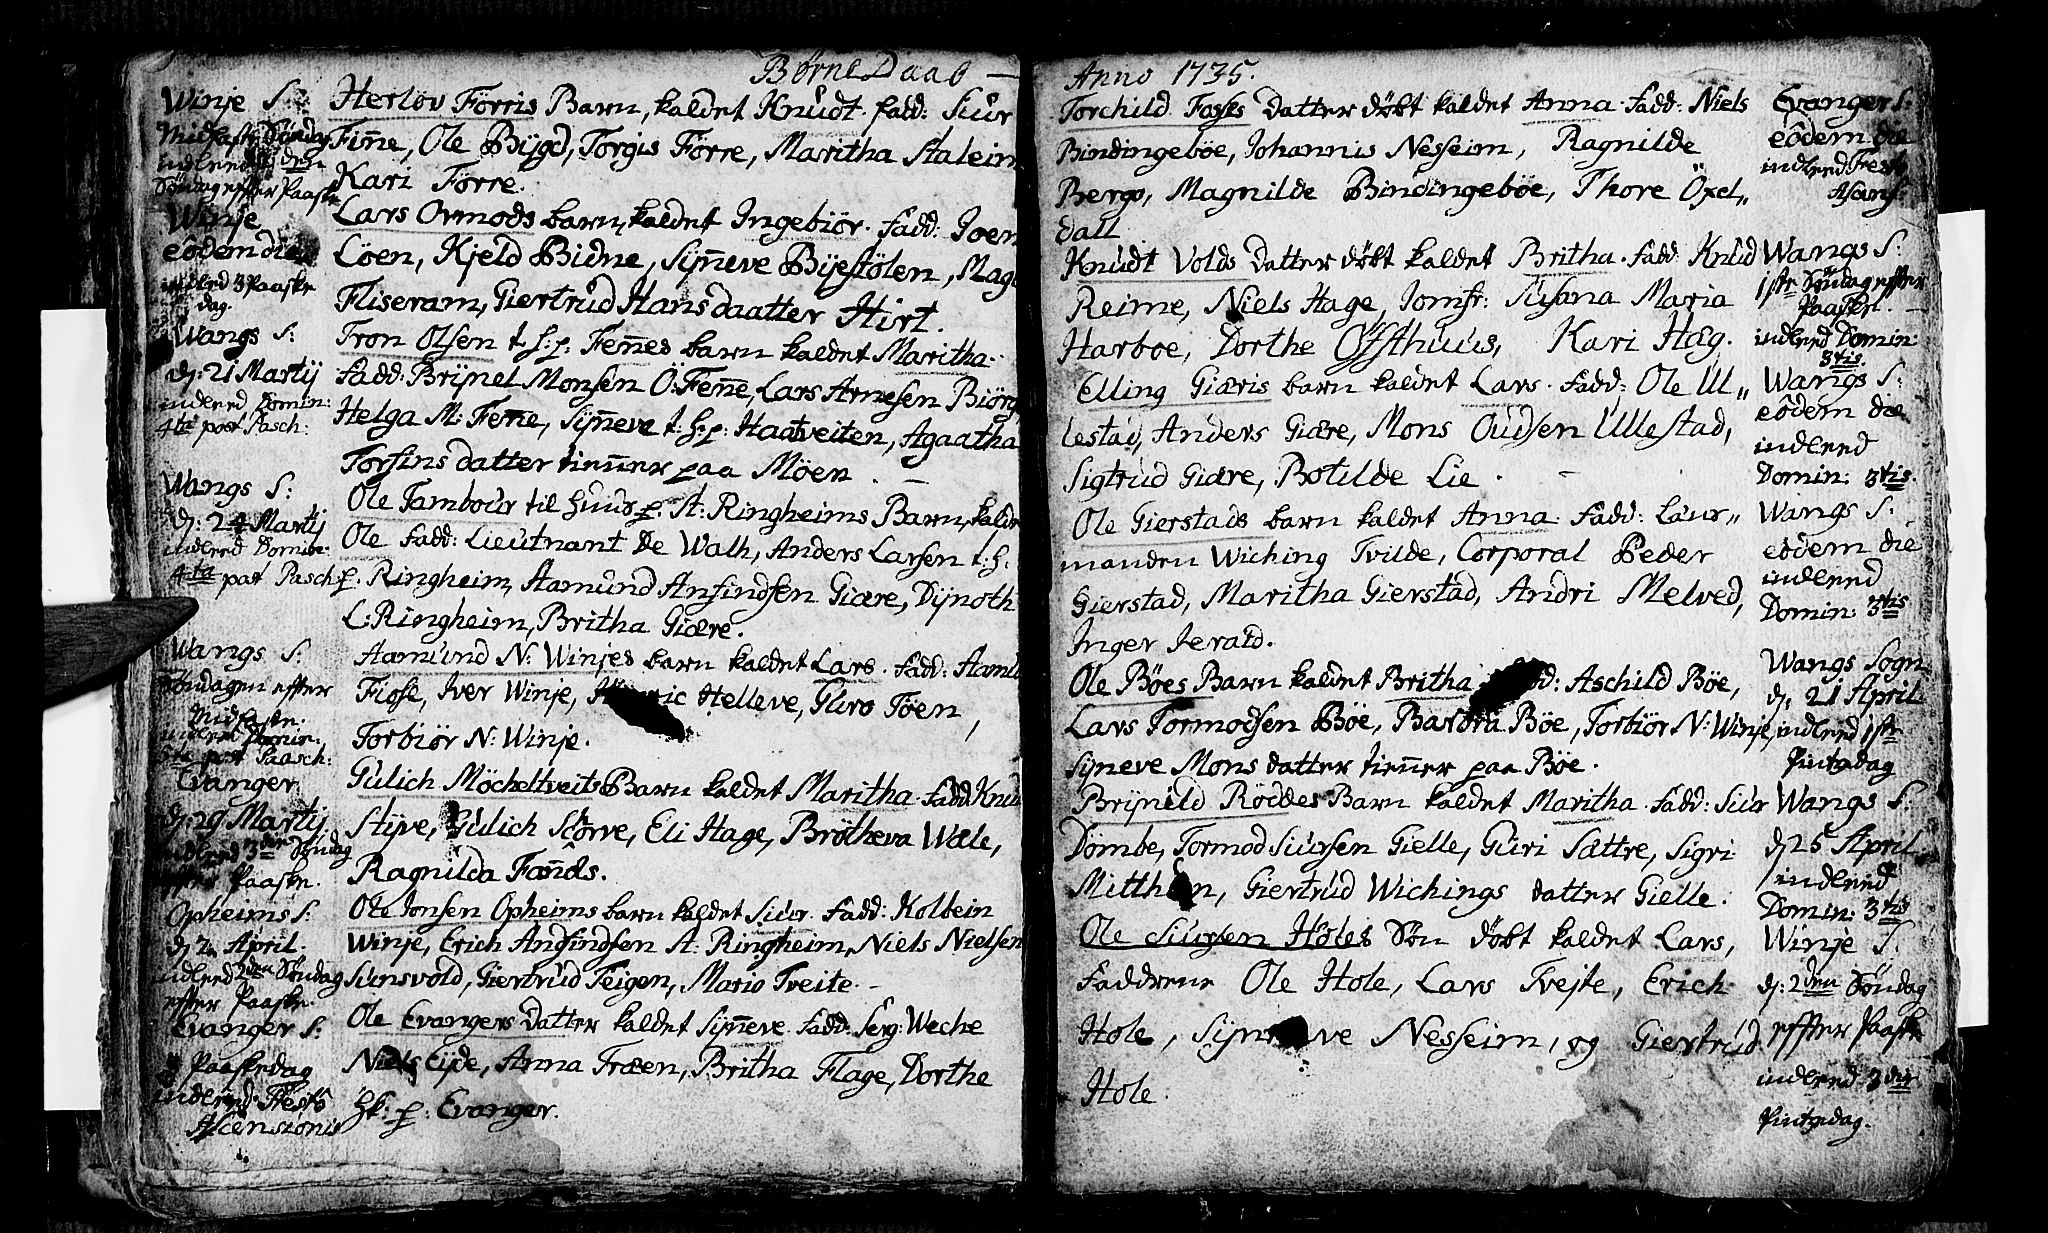 Børne Daab —
Winje S:
Midfaste Søndag
indleed: den
Søndag effter Paaske
Herlov Førris Barn, kaldet Knudt. fadd: Siur
Finne, Ole Bijgd, Torgis Førre, Maritha Staleim
Kari Førre.
Winje
eôdem die
indleed 3 Paaske
dag.
Lars Ormods barn, kaldet Ingebiør. fadd: Joen
Löen, Kjeld Bidne, Sijneve Bijestölen, Mag
Fliseram, Giertrud Hans daatter Hirt.
Wangs S:
d: 21 Martij
indleed Domin:
4te post Pasch:
Tron Olsen t. h: p: Fennes barn kaldet Maritha.
fadd: Brijnel Monsen Ö: Fenne, Lars Arnesen Biörg
Helga M: Fenne, Sijneve t: h: p: Haatveiten, Agaatha
Torfins datter tienner paa Möen.
Wangs S:
d: 24 Martij
indleed Domin:
4ta post Pasch
Ole Tambour til huus p. St: Ringheims Barn, kaldet
Ole fadd: Lieutnant De Walh, Anders Larsen t: h.
p. Ringheim, Aamund Anfindsen Giære, Dijnoth
L: Ringheim, Britha Giære.
Wangs S:
Söndagen effter
Midfasten.
indleed Domin:
5te post Paasch:
Aamund N: Winjes barn kaldet Lars. fadd: Aamu
Fiose, Iver Winje, Helleve, Guro Töen,
Torbiør N: Winje.
Evanger
d: 29 Martij
indleed 3die Söndag
effter Paaske.
Gulich Möcheltveits Barn kaldet Maritha. fadd Knu
Stijve, Gulich Storve, Eli Hage, Brötheva Wæle,
Ragnilda Fands.
Opheims S:
d 2. April.
indleed 2den Söndag
effter Paaske
Ole Jonsen Opheims barn kaldet Siur. fadd: Kolbein
Winje, Erich Anfindsen St: Ringheim, Niels Nielsen
Sunsvold, Giertrud Teigen, Mario Tveite. –
Evanger S:
3 Paaskedag
indleed: Festo
Ascensionis
Ole Evangers Datter kaldet Sijneve. fadd: Serg: Weche
Niels Eijde, Anna Træen, Britha Flage, Dorthe
Hk: p: Evanger.
Anno 1735.
Torchild Fosses Datter döbt kaldet Anna. fadd: Niels
Bindingeböe, Johannis Nesseim, Ragnilde
Berge, Magnilde Bindingeböe, Thore Öxel„
dall
Evanger S:
eôdem die
indleed Festo
Ascens:
Knudt Volds Datter döbt kaldet Britha. fadd. Knud
Reime, Niels Hage, Jomfr: Susana Maria
Harboe, Dorthe Ôfsthuus, Kari Hæg.
Wangs S:
1ste Söndag effter
Paaske. –
indleed Domin:
3tis.
Elling Giæris barn kaldet Lars. fadd: Ole Ul„
lestad, Anders Giære, Mons Oudsen Ullestad,
Sigtrud Giære, Botilde Lie.
Wangs S:
eôdem die
indleed
Domin: 3tis.
Ole Gierstads barn kaldet Anna. fadd: Laur„
manden Wiching Tvilde, Corporal Peder
Gierstad, Maritha Gierstad, Andri Melved,
Inger Jerald.
Wangs S:
eôdem die
indleed
Domin: 3tis
Ole Böes Barn kaldet Britha fadd: Aschild Böe,
Lars Tormodsen Böe, Barbra Böe, Torbiör N: Winje,
Sijneve Mons datter tienner paa Böe.
Wangs Sogn
d. 21 April
indleed 1ste
Pintzdag
Brijnild Röddes Barn kaldet Maritha. fadd: Siur
Dömbe, Tormod Siursen Gielle, Guri Sættre, Sigri
Mitthun, Giertrud Wichings datter Gielle.
Wangs S:
d 25 April
indleed
Domin: 3tis
Ole Siursen Holes Sön döbt kaldet Lars,
Fadderne Ole Hole, Lars Tvejte, Erich
Hole, Sijneve Nesseim, og Giertrud
Hole.
Winje S:
d: 2den Söndag
effter Paaske
indleed 3die
Pintzdag.